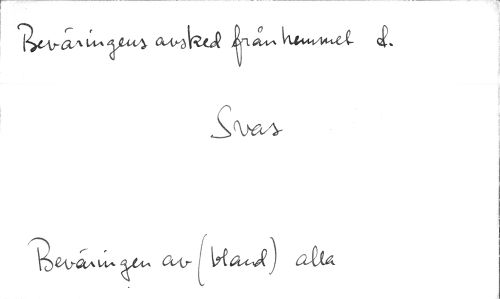 Beväringens avsked från hemmet d.
Svas
Beväringen av (bland) alla